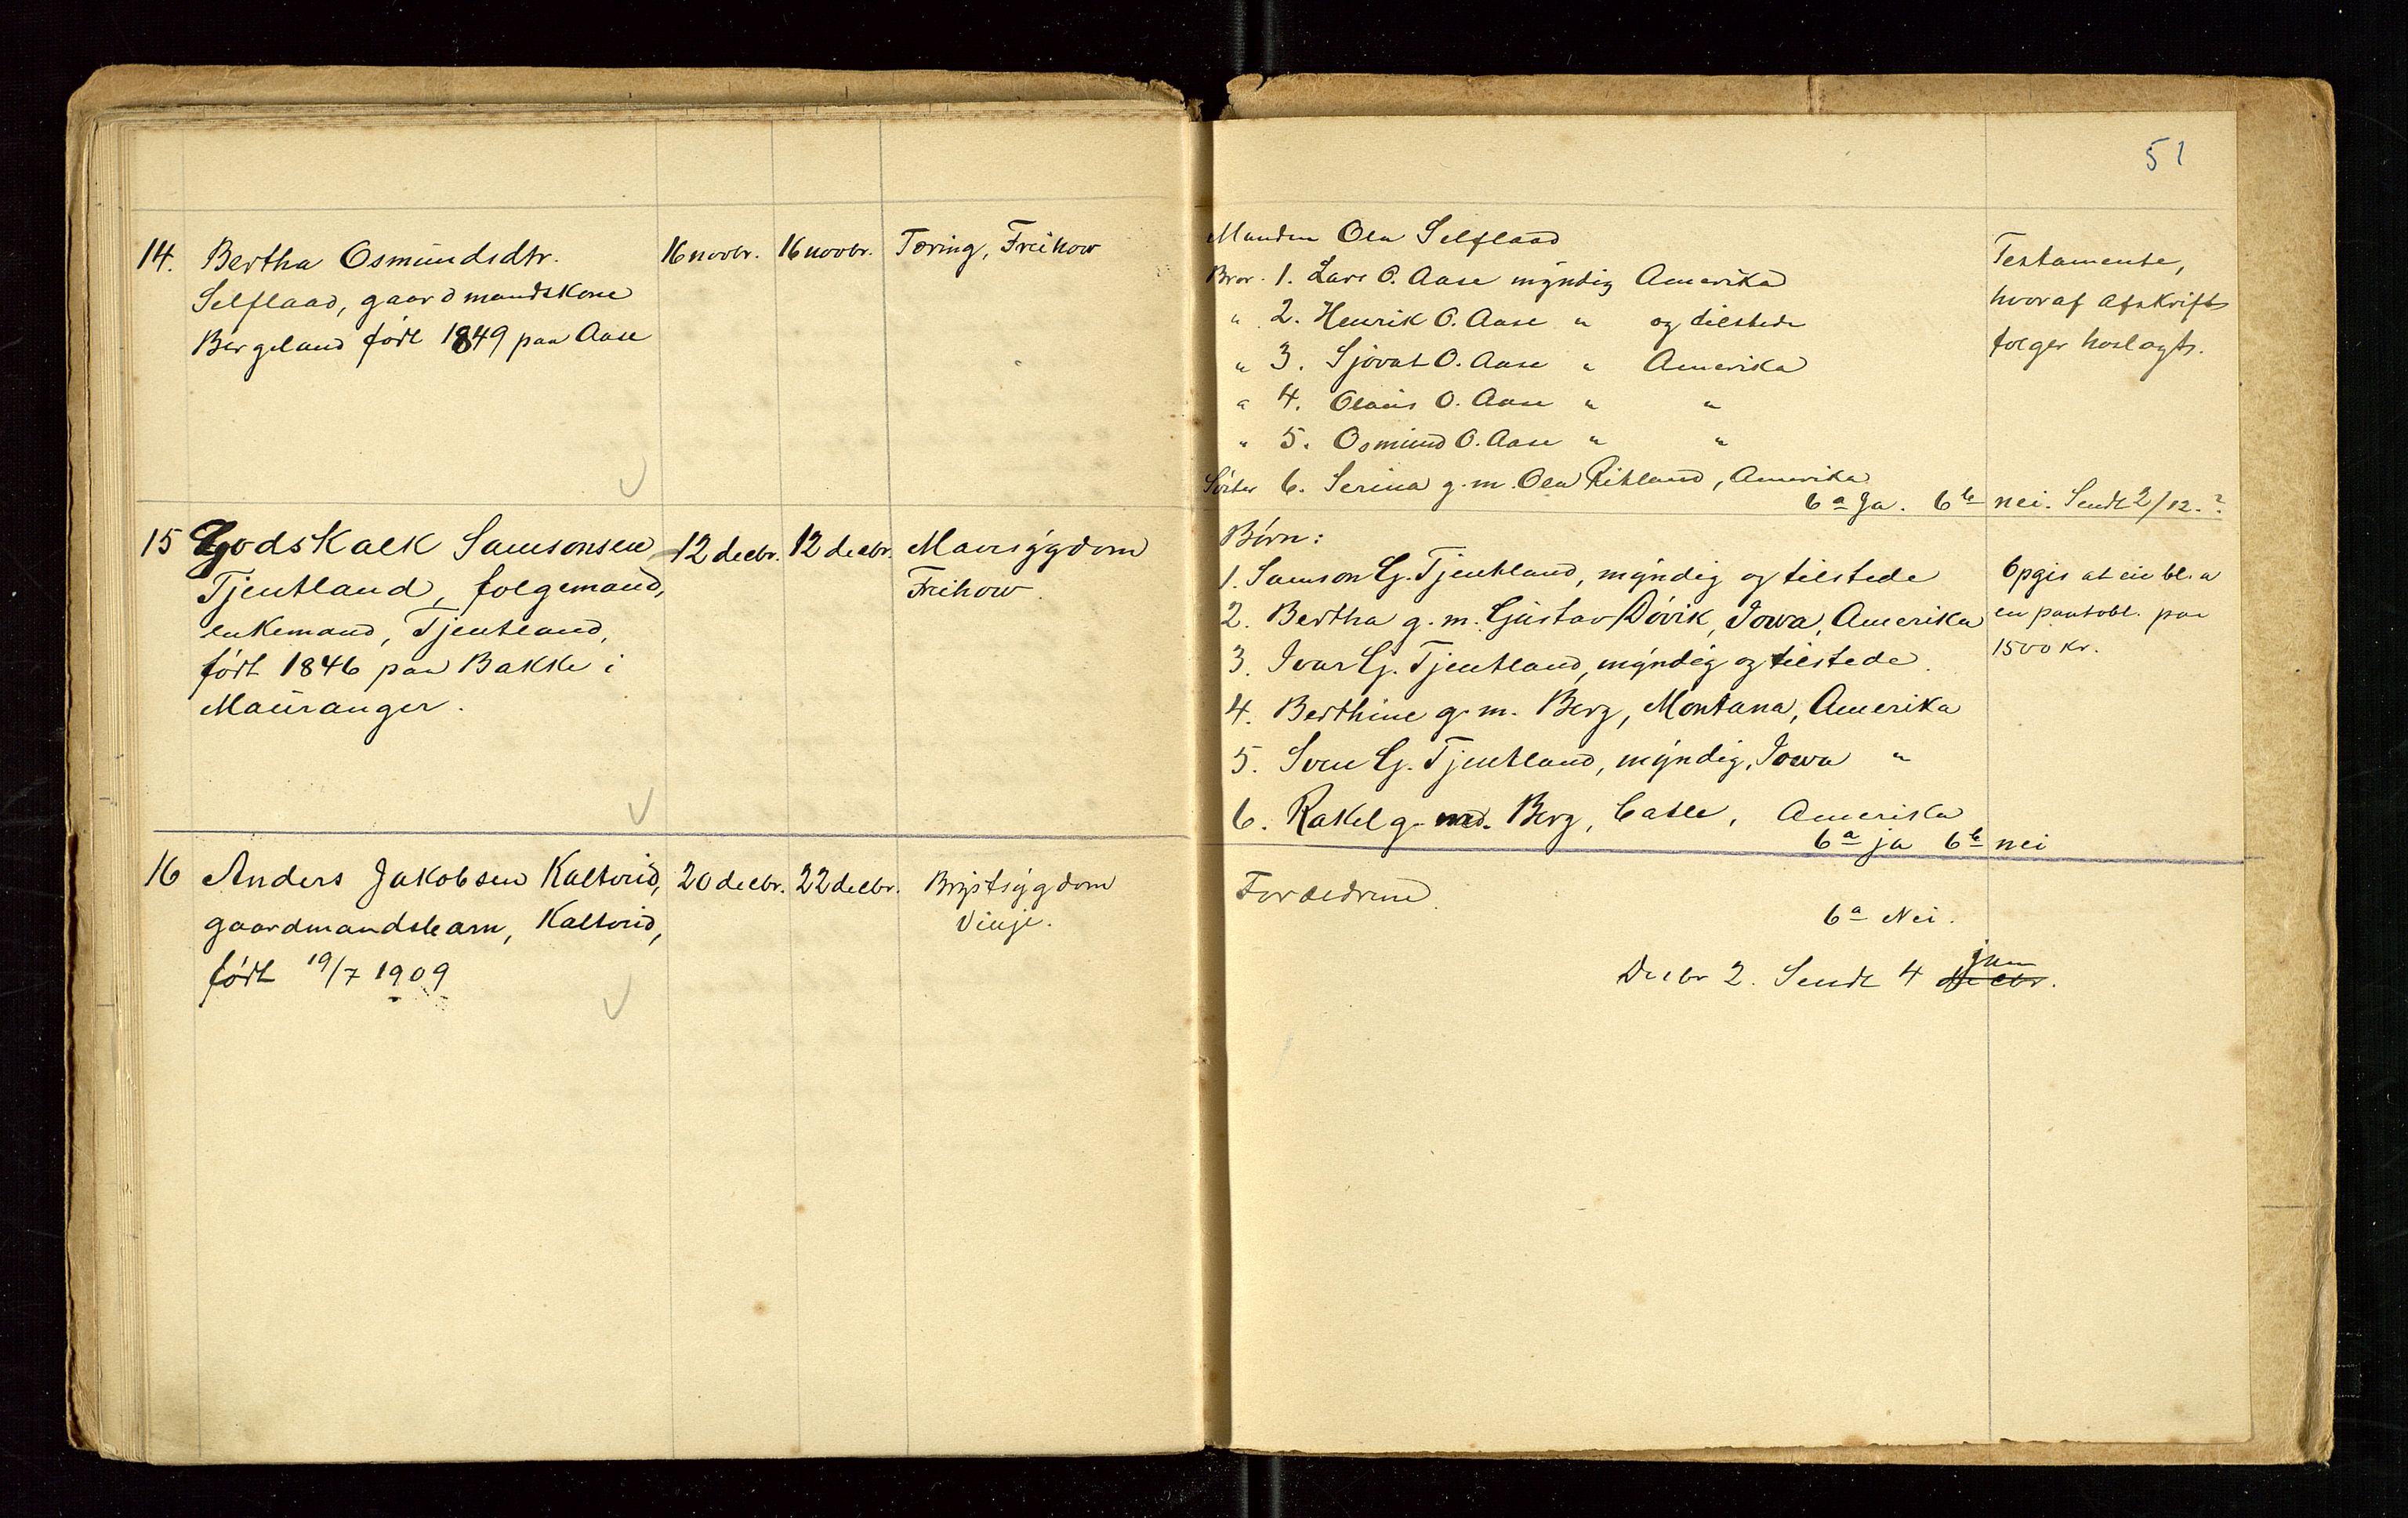 51
14. Bertha Osmundsdtr. 16 novbr. 16 novbr. Tæring, Freihow
Selflaad, gaardmandskone
Bergeland født 1849 paa Aase
Manden Ola Selflaad
Bror 1. Lars O. Aase myndig Amerika
" 2. Henrik O. Aase " og tilstede
" 3. Sjovat O. Aase " Amerika
" 4. Olaus O. Aase " "
" 5. Osmund O. Aase " "
Søster 6. Serina g. m. Ola Rikland, Amerika
6a Ja. 6b nei. Sendt 2/12. ?
Testamente,
hvoraf afskrift
følger hoslagt.
15 Godskalk Samsonsen 12 decbr. 12 decbr. Mavesygdom
Tjentland, følgemand, Freihow.
enkemand, Tjentland,
født 1846 paa Bakke i
Mauranger.
Børn:
1. Samson G. Tjentland, myndig og tilstede
2. Bertha g. m. Gustav Døvik, Iowa, Amerika
3. Ivar G. Tjentland, myndig og tilstede.
4. Berthine g. m. Berg, Montana, Amerika
5. Sven G. Tjentland, myndig, Iowa "
6. Rakel g. med. Berg, , Amerika
6a ja 6b nei
Opgis at eie bl. a
en pantobl. paa
1500 kr.
16 Anders Jakobsen Kaltveid, 20 decbr. 22 decbr. Brystsygdom
gaardmandsbarn, Kaltveid, Vinje.
født 19/7 1909
Forældrene.
6a Nei.
Decbr 2. Sendt 4 decbr. jan